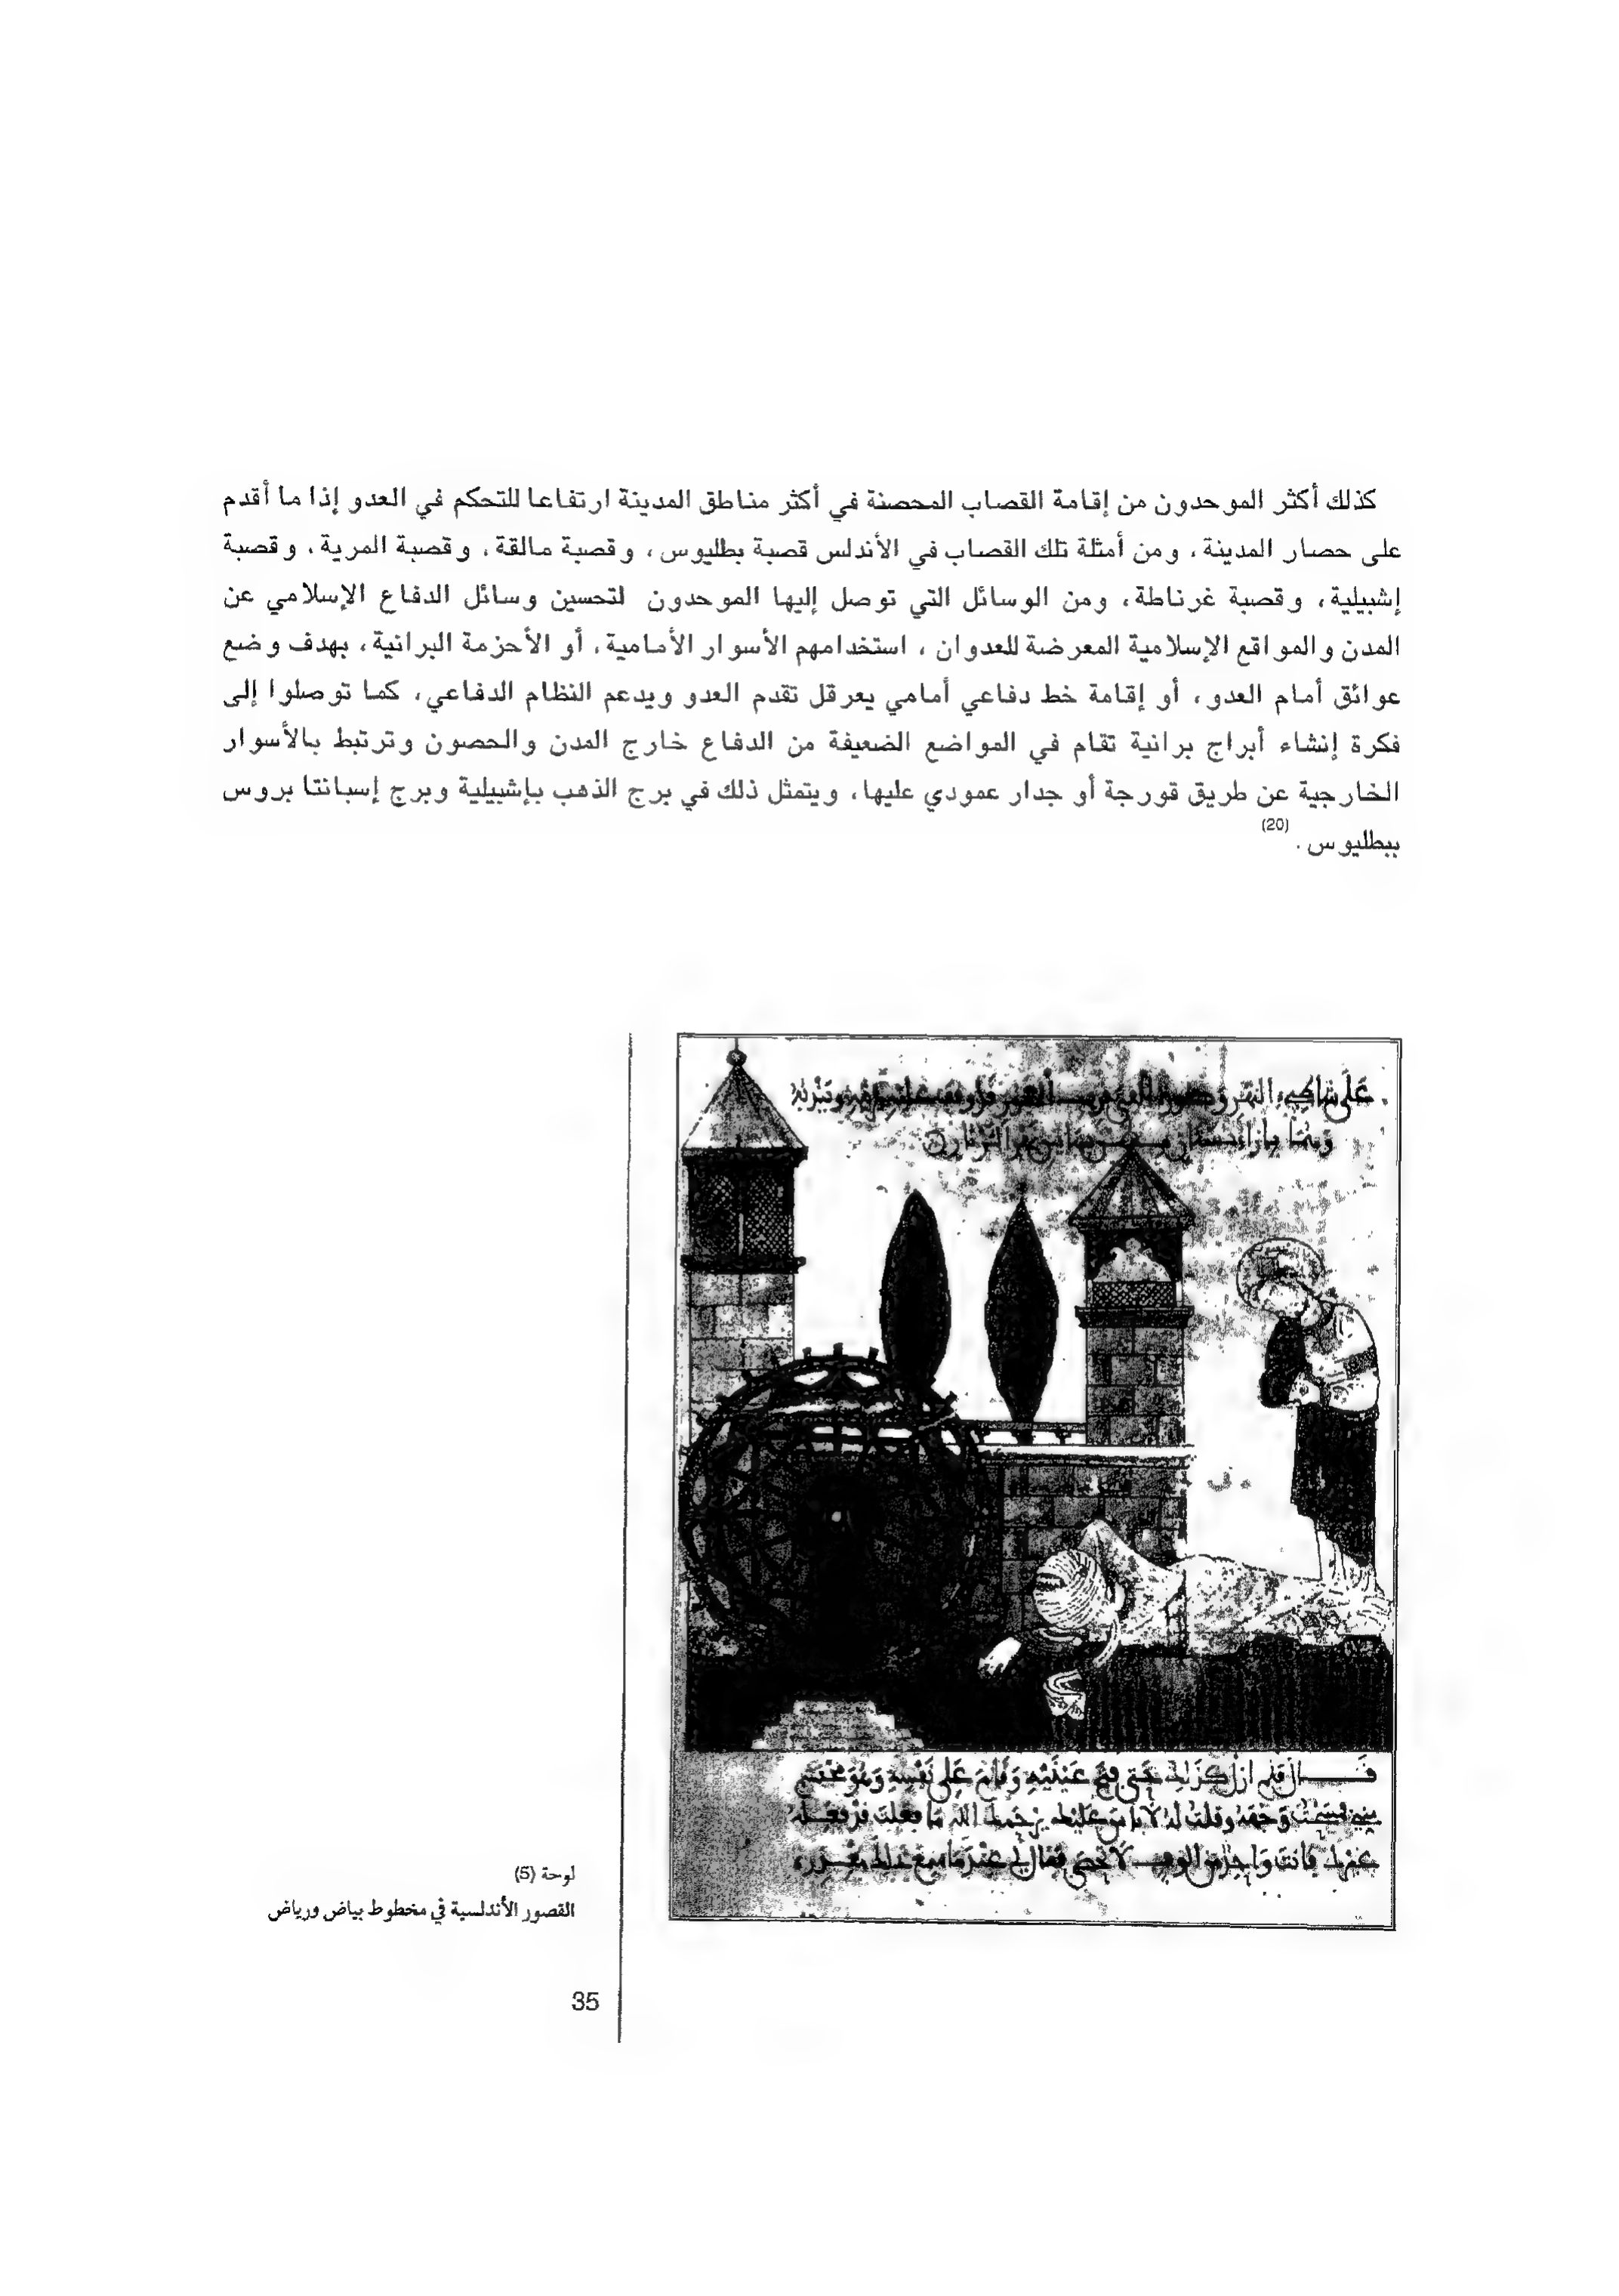 كذلك أكثر الموحدون من إقامة القصاب المحصنة في أكثر مناطق المدينة ارتفاعا للتحكم في العدو إذا ما أقدم
على حصار المدينة، ومن أمثلة تلك القصاب في الأندلس قصبة بطليوس، وقصبة مالقة، وقصبة المرية، وقصبة
إشبيلية، وقصبة غرناطة، ومن الوسائل التي توصل إليها الموحدون لتحسين وسائل الدفاع الإسلامي عن
المدن والمواقع الإسلامية المعرضة للعدوان، استخدامهم الأسوار الأمامية، أو الأحزمة البرانية، بهدف وضع
عوائق أمام العدو، أو إقامة خط دفاعي أمامي يعرقل تقدم العدو ويدعم النظام الدفاعي، كما توصلوا إلى
فكرة إنشاء أبراج برانية تقام في المواضع الضعيفة من الدفاع خارج المدن والحصون وترتبط بالأسوار
الخارجية عن طريق قورجة أو جدار عمودي عليها، ويتمثل ذلك في برج الذهب بإشبيلية وبرج إسبانتا بروس
ببطليوس. (20)
على شاطىء النهر
فال فلم ازل كذلك حتى فتح عينيه وقام على نفسه وهو
وجهه وقلت له لا باس عليك يرحمك الله ما فعلت
لوحة (5)
القصور الأندلسية في مخطوط بياض ورياض
35